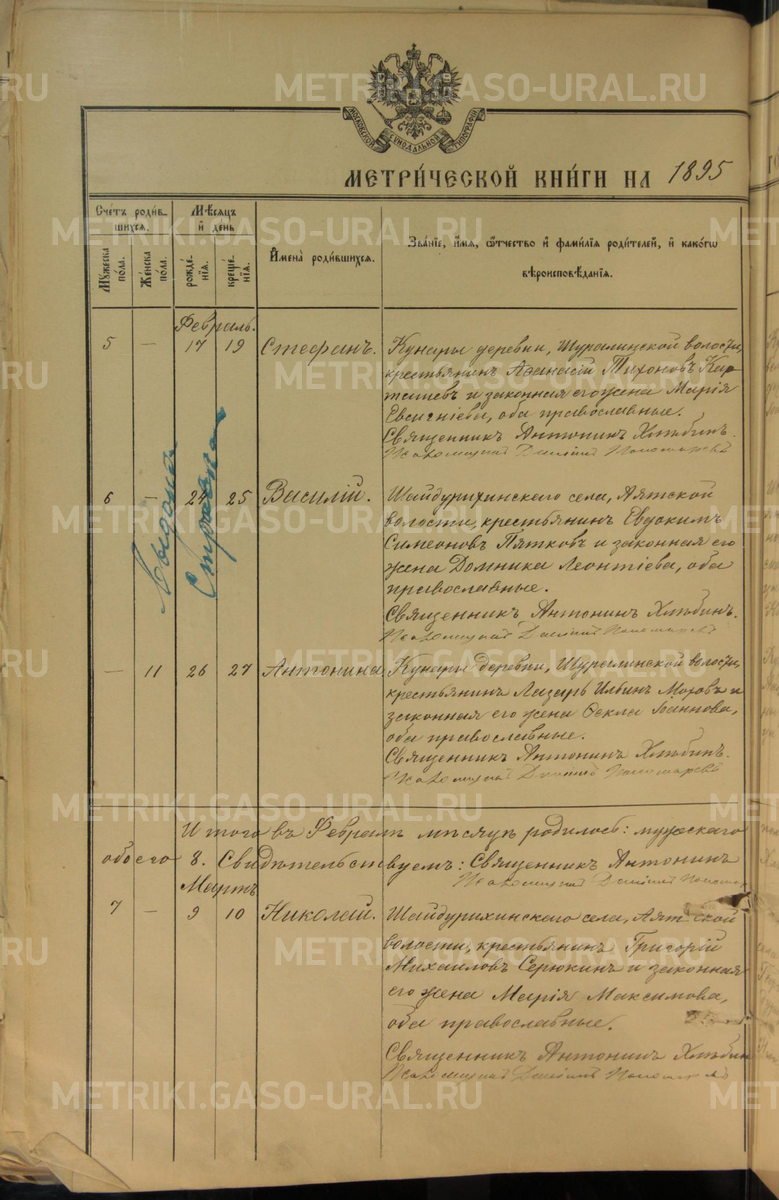 МОСКОВСКОЙ СѴНОДАЛЬНОЙ ТИПОГРАФІИ
МЕТРИ́ЧЕСКОЙ КНИ́ГИ НА 1895
Сче́тъ роди́в-
шихся.
Мꙋ́жеска
по́ла.
Же́нска
по́ла.
Мѣ́сяцъ
и҆ де́нь
рожде́-
нїя.
креще́-
нїя.
И҆мена̀ роди́вшихся.
Зва́нїе, и҆́мя, ѻ҆́тчество и҆ фами́лїя роди́телей, и҆ како́гѡ
вѣроисповѣ́данїя.
Февраль.
5 — 17 19 Стефанъ. Кунары деревни, Шуралинской волости,
крестьянинъ Аѳанасій Тихоновъ Кар-
ташевъ и законная его жена Марія
Евсигніева, оба православные.
Священникъ Антонинъ Хлѣбинъ.
Псаломщикъ Пономаревъ
6 — 24 25 Василій. Шайдурихинскаго села, Аятской
волости, крестьянинъ Евдокимъ
Симеоновъ Пятковъ и законная его
жена Домника Леонтіева, оба
православные.
Священникъ Антонинъ Хлѣбинъ.
Псаломщикъ Пономаревъ
Выдана
— 11 26 27 Антонина Кунары деревни, Шуралинской волости,
крестьянинъ Лазарь Ильинъ Моховъ и
законная его жена Ѳекла Іоаннова,
оба православные.
Священникъ Антонинъ Хлѣбинъ.
Псаломщикъ Пономаревъ
Итого въ Февралѣ мѣсяцѣ родилось: мужескаго
обоего 8. Свидѣтельствуемъ: Священникъ Антонинъ
Псаломщикъ
Мартъ
7 — 9 10 Николай. Шайдурихинскаго села, Аятской
волости, крестьянинъ Григорій
Михаиловъ Серюкинъ и законная
его жена Марія Максимова,
оба православные.
Священникъ Антонинъ Хлѣбин
Псаломщикъ Пономаревъ
METRIKI.GASO-URAL.RU